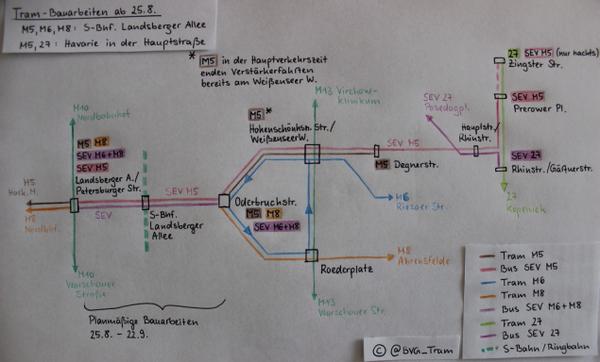 Tram-Bauarbeiten ab 25.8.
M5, M6, M8: S-Bhf. Landsberger Allee
M5, 27: Havarie in der Hauptstraße
* M5 in der Hauptverkehrszeit
enden Verstärkerfahrten
bereits am Weißenseer W.
27 SEV M5 (nur nachts)
Zingster Str.
SEV M5
Prerower Pl.
SEV 27
Hauptstr./
Rhinstr.
SEV 27
Rhinstr./Gärtnerstr.
27
Köpenick
M13 Virchow-
klinikum
M5 *
Hohenschönh. Str./
Weißenseer W.
SEV M5
M5 Degnerstr.
M6
Riesaer Str.
M10
Nordbahnhof
M5 M8
SEV M6+M8
SEV M5
Landsberger A./
Petersburger Str.
M5
Hack. M.
M8
Nordbhf.
SEV
SEV M5
S-Bhf.
Landsberger
Allee
Oderbruchstr.
M5 M8
SEV M6+M8
M8
Ahrensfelde
Roederplatz
M13
Warschauer Str.
M10
Warschauer
Straße
Planmäßige Bauarbeiten
25.8. – 22.9.
Tram M5
Bus SEV M5
Tram M6
Tram M8
Bus SEV M6+M8
Tram 27
Bus SEV 27
S-Bahn/Ringbahn
© @BVG_Tram